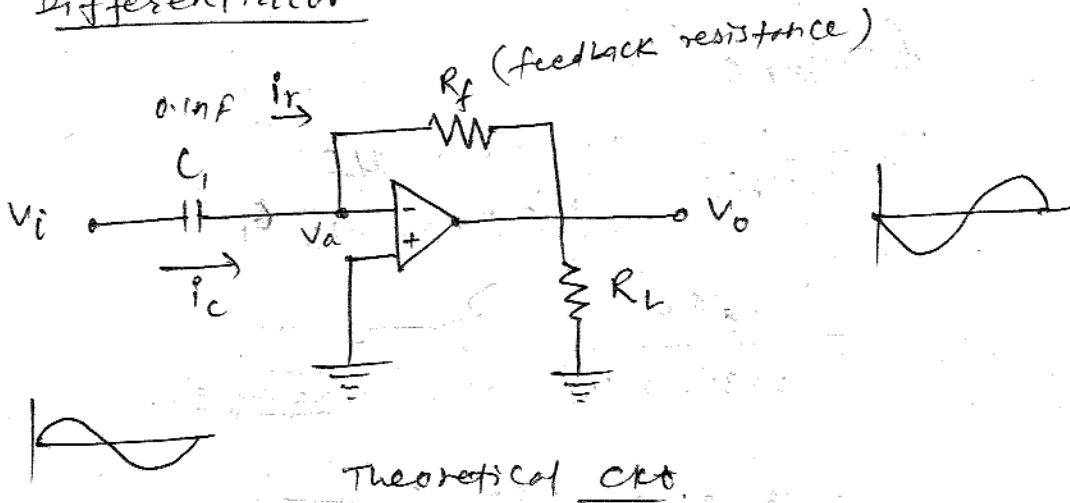 Differentiator
(feedback resistance)
Rf
0.1nF
ir
C1
Vi
Va
-
+
Vo
ic
RL
Theoretical ckt.